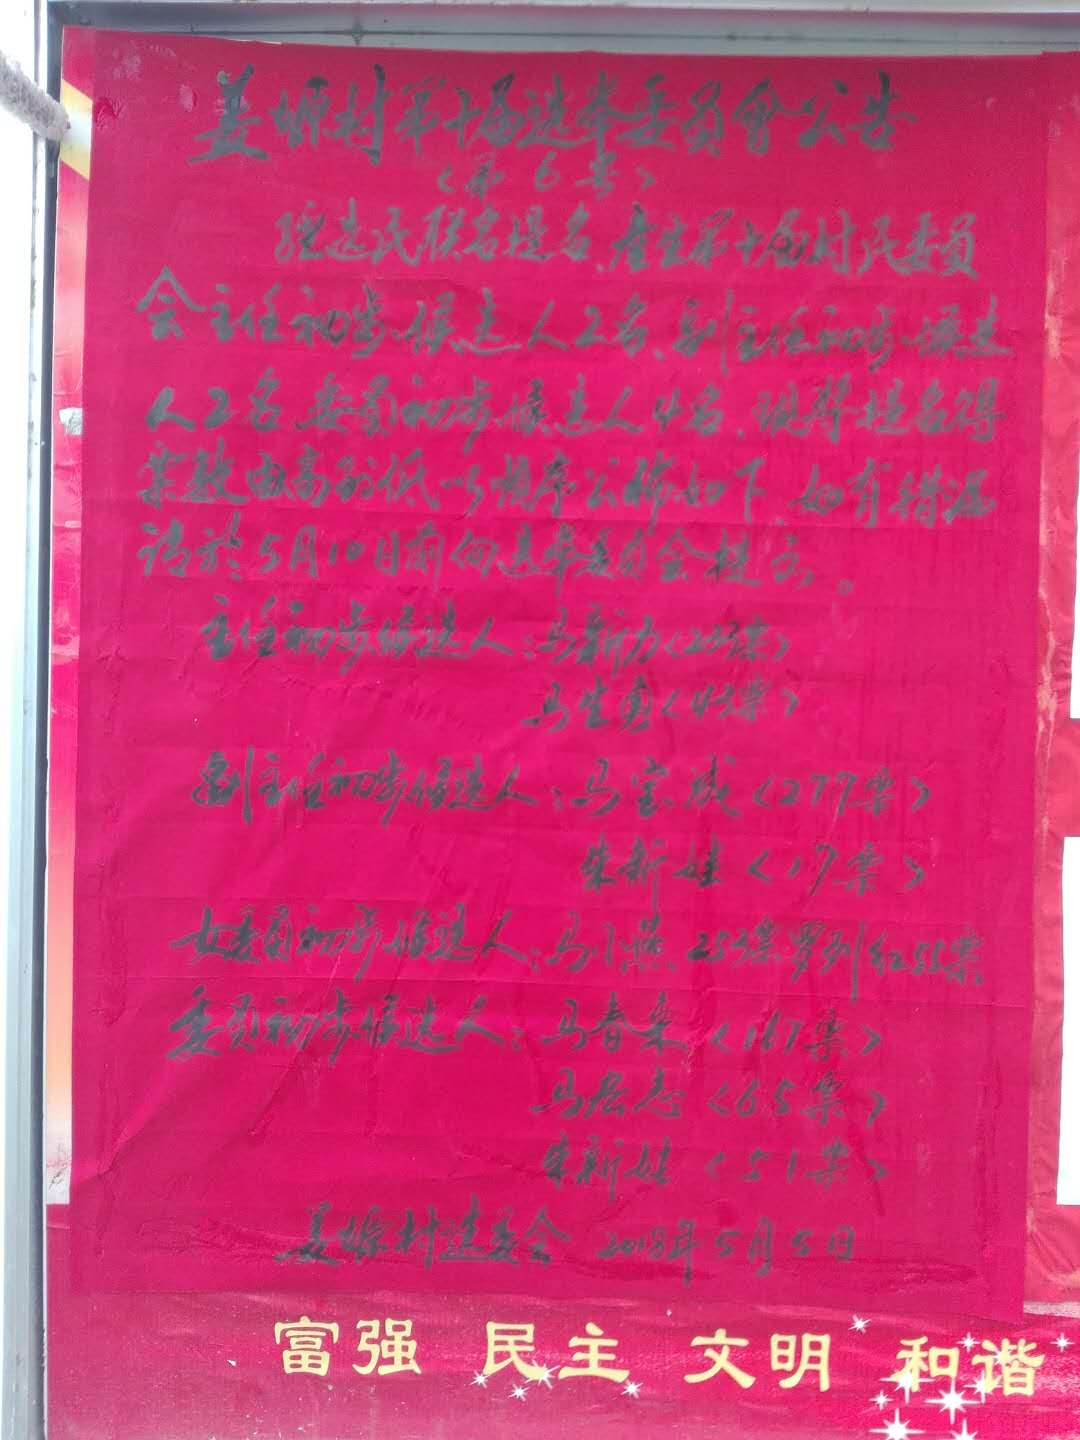 姜塬村第十届选举委员會公告
（第6号）
经选民联名提名、产生第十届村民委员
会主任初步候选人2名、副主任初步候选
人2名、委员初步候选人4名、现将提名得
票数由高到低以顺序公布如下、如有错漏
请於5月10日前向选举委员会提出。
主任初步候选人：马新力（233票）
马生勇（43票）
副主任初步候选人：马宝成（277票）
朱新娃（17票）
女委员初步候选人：马小燕 253票罗列红55票
委员初步候选人：马春荣（161票）
马居志（65票）
朱新娃（51票）
姜塬村选委会 2018年5月5日
富强 民主 文明 和谐